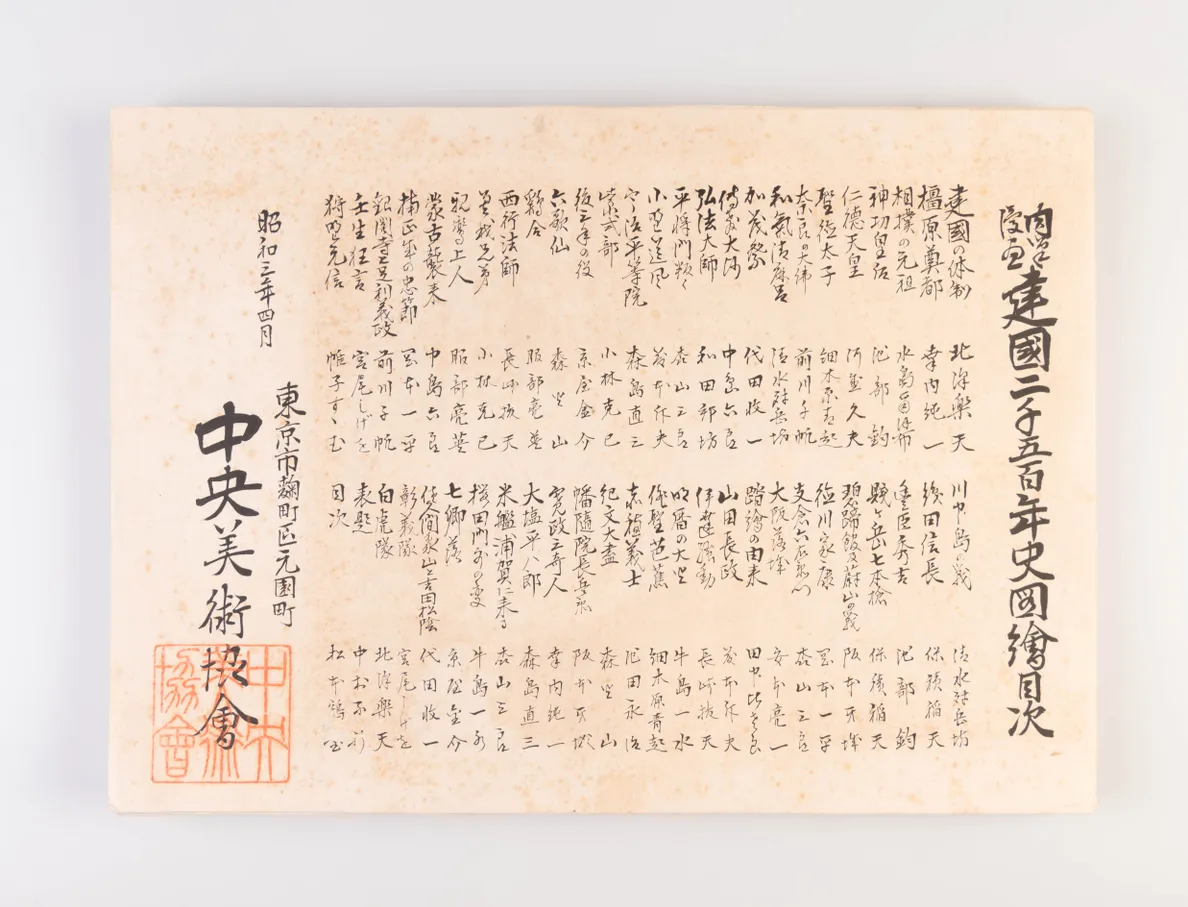 肉筆
漫画
建國二千五百年史図繪目次
建國の体制 北沢樂天
橿原奠都 幸内純一
相撲の元祖 水島爾保布
神功皇后 池部鈞
仁徳天皇 河盛久夫
聖徳太子 細木原青起
奈良の大佛 前川千帆
和氣清麻呂 清水対岳坊
加茂祭 代田收一
傳教大師 中島六郎
弘法大師 和田邦坊
平將門叛く 森山三郎
小野道風 宍戸
宇治平等院 森島直三
紫式部 小林克己
後三年の役 京屋金介
六歌仙 森 山
鷄合 服部亮英
西行法師 長崎抜天
曽我兄弟 小林克己
親鸞上人 服部亮英
蒙古襲来 中島六郎
楠正成の忠節 岡本一平
銀閣寺と足利義政 前川千帆
壬生狂言 宮尾しげを
狩野元信 帷子すゝむ
川中島の戦 清水対岳坊
織田信長 保積稲天
豊臣秀吉 池部鈞
賤ヶ岳七本槍 保積稲天
碧蹄館及蔚山の戦 阪本牙城
徳川家康 岡本一平
支倉六右衛門 森山三郎
大阪落城 安本亮一
踏繪の由来 田中比左良
山田長政
伊達騒動 長崎抜天
明暦の大火 牛島一水
俳聖芭蕉 細木原青起
赤穂義士 森 山
紀文大盡 池田永治
幡随院長兵衛 阪本牙城
寛政三奇人 幸内純一
大塩平八郎 森島直三
米艦浦賀に来る 森山三郎
桜田門外の変 牛島一水
七卿落 京屋金介
佐久間象山と吉田松陰 代田收一
彰義隊 宮尾しげを
白虎隊 北沢樂天
表題
目次 松本
昭和三年四月
東京市麹町区元園町
中央美術協會
中央美術協會